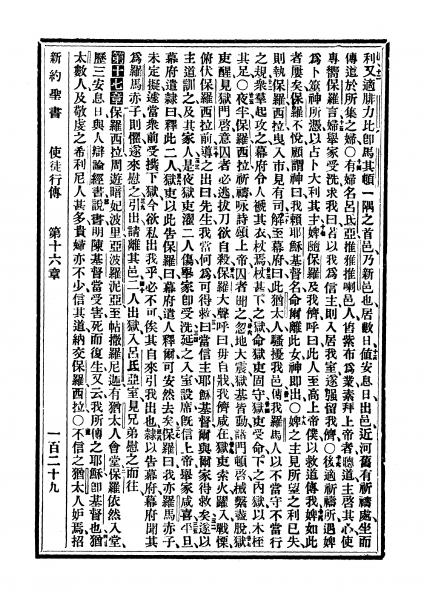 利又適腓力比卽馬其頓一隅之首邑乃新邑也居數日值安息日出邑近河舊有祈禱處坐而
傳道於所集之婦○有婦名呂氏亞推推喇邑人售紫布爲業素拜上帝者聽道主啓其心使
專嚮保羅言婦舉家受洗求我曰若以我爲信主則入居我室遂强留我儕○後適祈禱所遇婢
爲卜筮神所憑以占卜大利其主婢隨保羅及我儕呼曰此人至高上帝僕以救道傳我婢如此
者屢矣保羅不悅顧謂神曰我賴耶穌基督名命爾離此女神卽出○婢之主見所望之利已失
則執保羅西拉曳入市見有司解至幕府曰此猶太人騷擾我邑傳我羅馬人以不當守不當行
之規衆羣起攻之幕府令人褫其衣杖焉杖甚下之獄命獄吏固守獄吏受命下之內獄以木桎
其足○夜半保羅西拉祈禱咏詩頌上帝囚者聞之忽地大震獄基皆動諸門頓啓械繫盡脫獄
吏醒見獄門啓意囚者必逃拔刀欲自殺保羅大聲呼曰毋自戕我儕咸在獄吏索火躍入戰慄
俯伏保羅西拉前導之出曰先生我當何爲可得救曰當信主耶穌基督爾與爾家得救矣遂以
主道訓之及其家人是夜獄吏濯二人傷舉家卽受洗延之入室設席旣信上帝舉家咸喜平旦
幕府遣隸曰釋此二人獄吏以此告保羅曰幕府遣人釋爾可安然去矣保羅曰我亦羅馬赤子
未定擬遽當衆前受撲下獄今欲私出我乎必不可俟其自來引我出也隸以告幕府幕府聞其
爲羅馬赤子則懼遂來慰之引出請離其邑二人出獄入呂氏亞室見兄弟慰之而往
第十七章 保羅西拉周遊暗妃波里亞波羅泥亞至帖撒羅尼迦有猶太人會堂保羅依然入堂
歷三安息日與人辯論經書說書明陳基督當受害死而復生又云我所傳之耶穌卽基督也猶
太數人及敬虔之希利尼人甚多貴婦亦不少信其道納交保羅西拉○不信之猶太人妒焉招
新約聖書 使徒行傳 第十六章 一百二十九